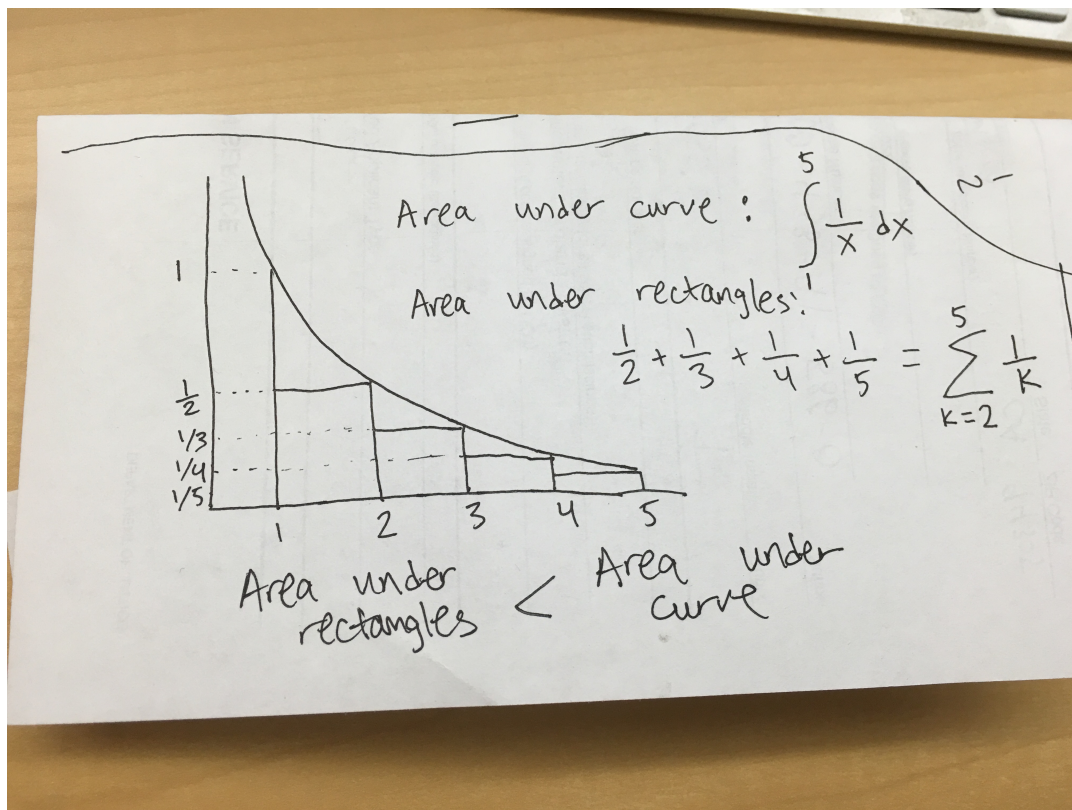 Area under curve: ∫₁⁵ 1/x dx
Area under rectangles:
1/2 + 1/3 + 1/4 + 1/5 = ∑_{k=2}^{5} 1/k
1
1/2
1/3
1/4
1/5
1 2 3 4 5
Area under rectangles < Area under curve